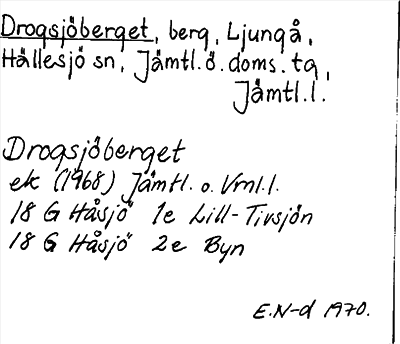 Drogsjöberget, berg, Ljungå,
Hällesjö sn, Jämtl.ö.doms.tg,
Jämtl.l.
Drogsjöberget
ek (1968) Jämtl. o. Vrnl.l.
18 G Håsjö 1e Lill-Tivsjön
18 G Håsjö 2e Byn
E.N-d 1970.